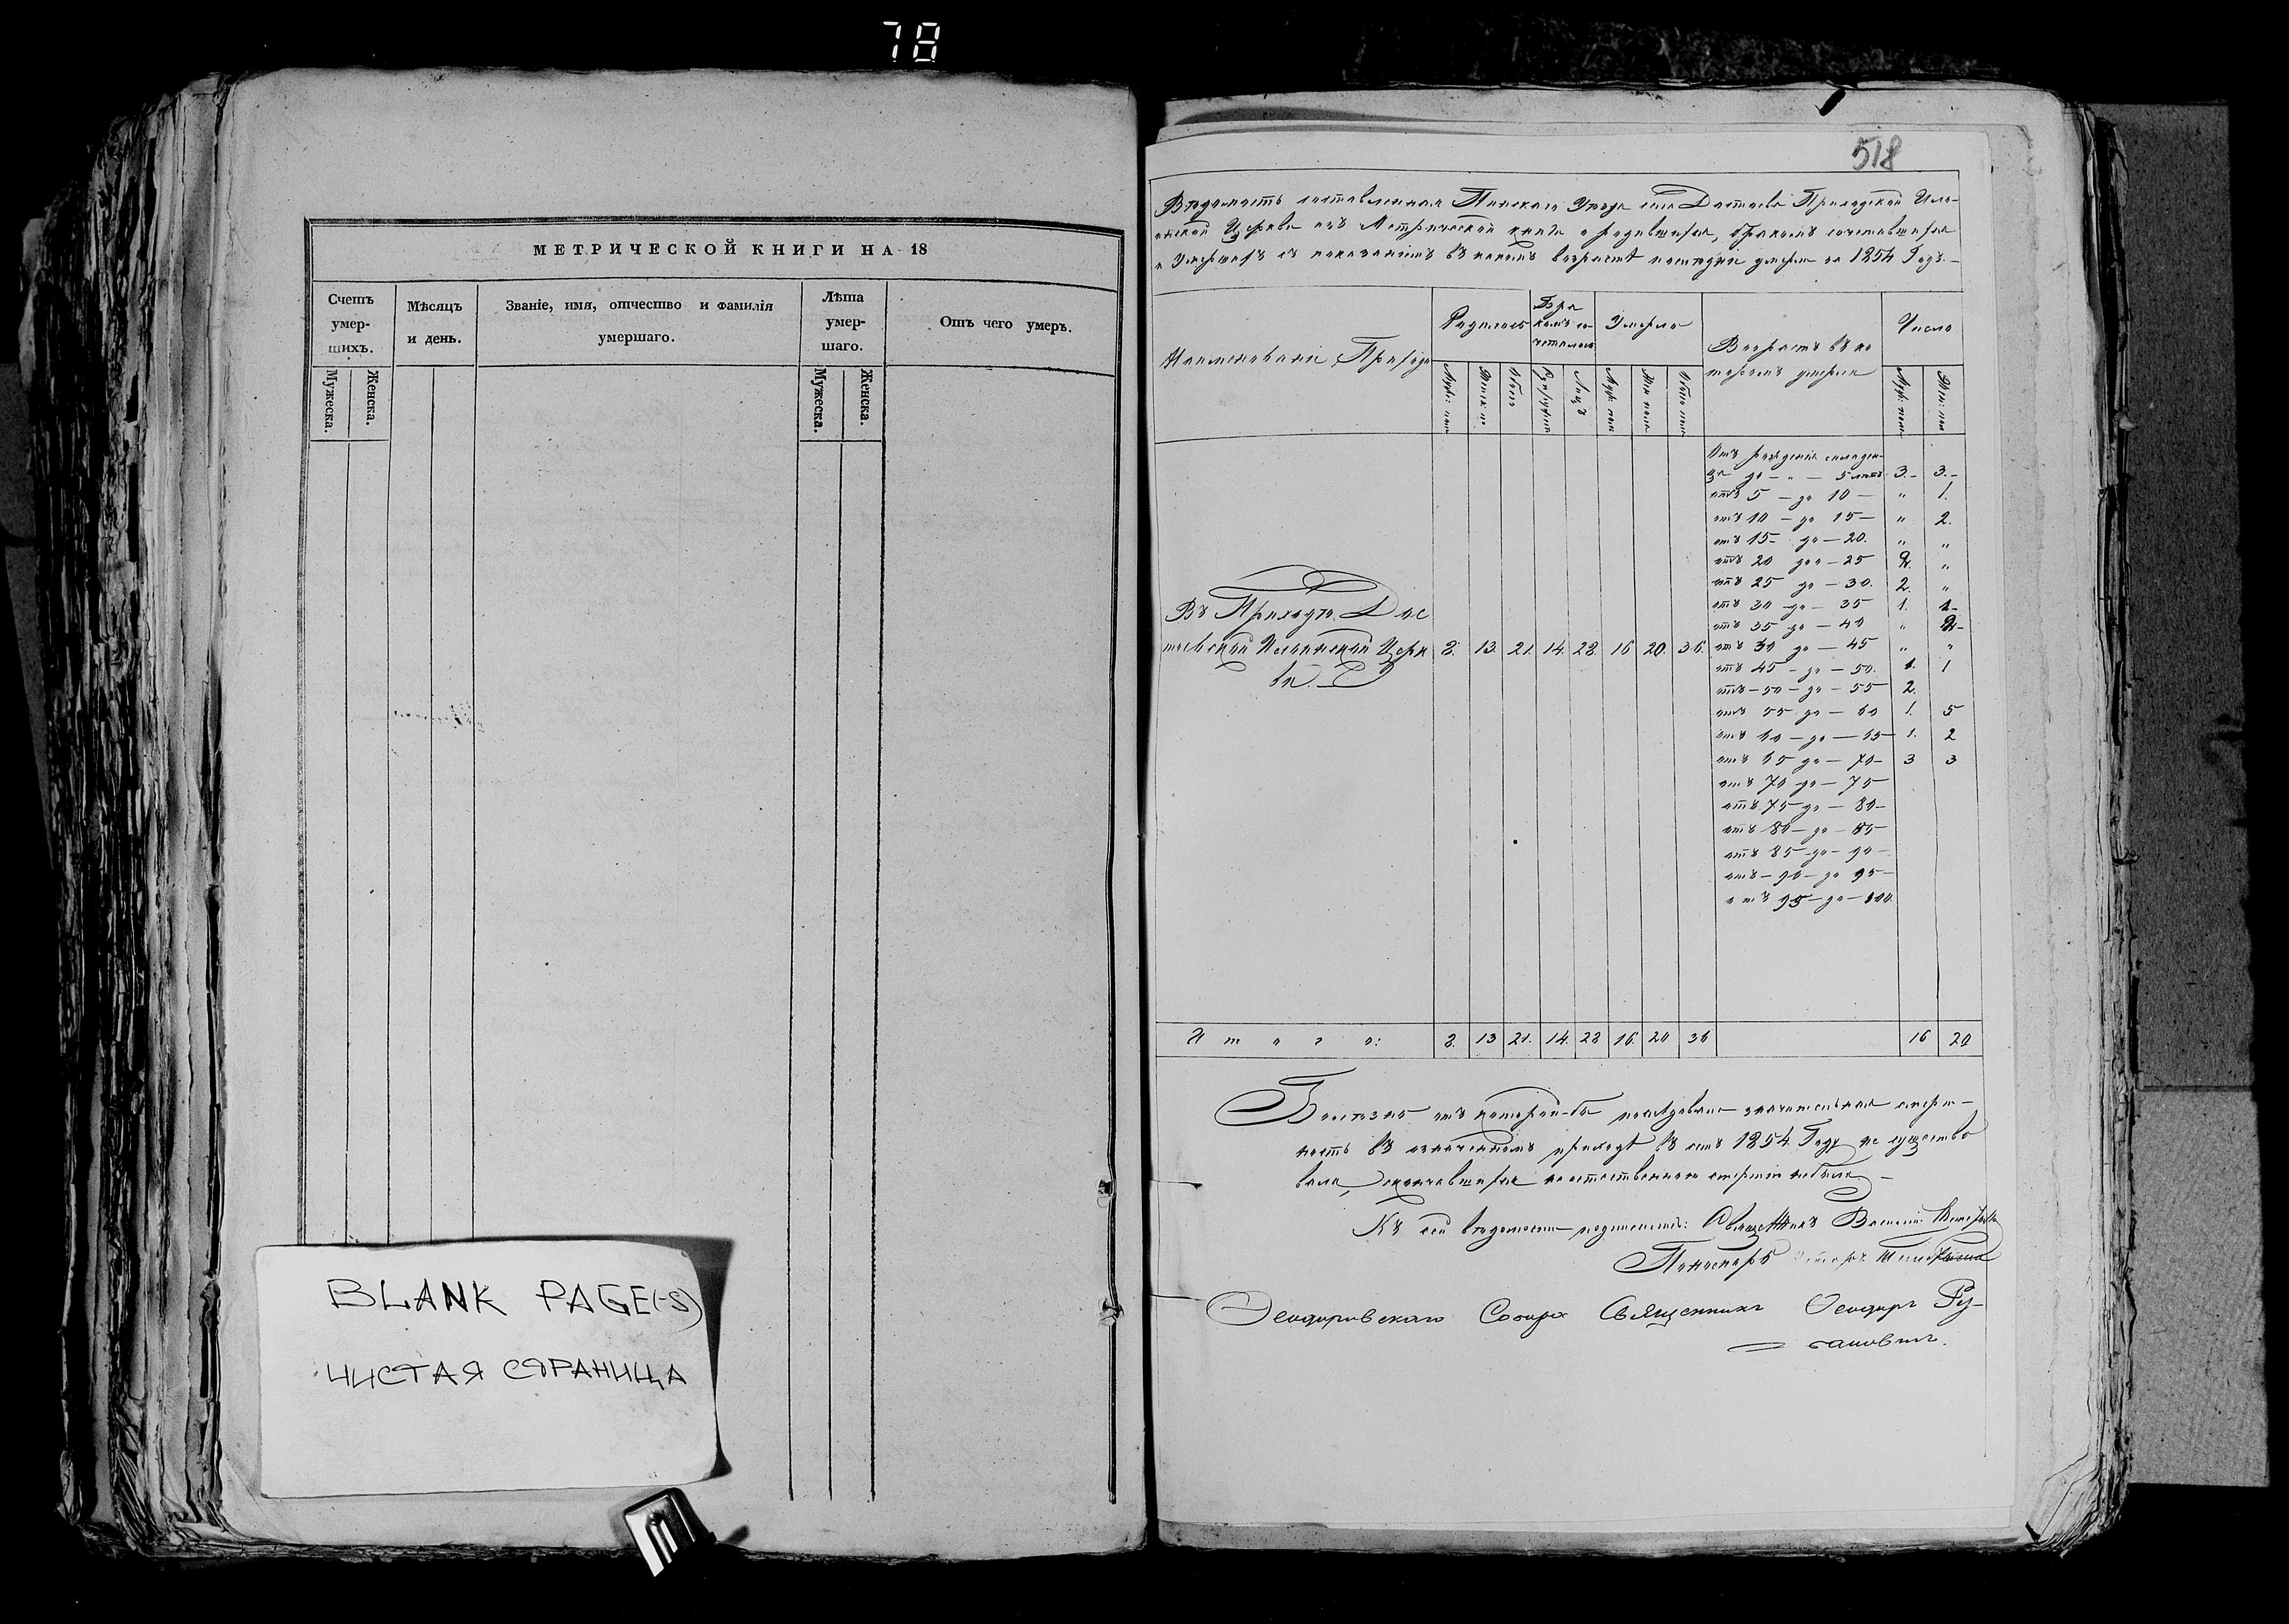 78
МЕТРИЧЕСКОЙ КНИГИ НА 18
Счетъ умер-шихъ.
Мѣсяцъ и день.
Званіе, имя, отчество и фамилія умершаго.
Лѣта умер-шаго.
Отъ чего умеръ.
Мужеска.
Женска.
Мужеска.
Женска.
BLANK PAGE(-S)
ЧИСТАЯ СТРАНИЦА
518
Вѣдомость составленная Пинскаго Уѣзда села Достоева Приходской Иль-
инской Церкви изъ Метрической книги о родившихся, бракомъ сочетавшихся
и Умершихъ съ показаніемъ въ какомъ возрастѣ послѣдніе умерли за 1854 Годъ.
Наименованіе Прихода
Родилось
Бра
комъ со
четалось
Умерло
Возрастъ въ ко
торомъ умерли
Число
Въ Приходѣ Дос
тоевской Ильинской Церк
ви.
8. 13. 21. 14. 28. 16 20. 36.
Отъ рожденія младен-
ца до — 5 лѣтъ 3. 3.
отъ 5 — до 10 — " 1.
отъ 10 — до 15 — " 2.
отъ 15 до — 20. " "
отъ 20 до — 25 2. "
отъ 25 до — 30. 2. "
отъ 30 до — 35 1. 1
отъ 35 до — 40 " 2
до — 45 " "
отъ 45 — до — 50. 1. 1
отъ — 50 — до — 55 2.
отъ 55 до — 60 1. 5
отъ 60 — до — 65 1. 2
отъ 65 до — 70 3 3
отъ 70 до — 75
отъ 75 до — 80
отъ 80 — до — 85
отъ 85 — до — 90
отъ — 90 — до 95
отъ 95 — до — 100.
Итого: 8. 13 21. 14. 28 16. 20 36 16 20
Болѣзни отъ которой-бы послѣдовала значительная смерт-
ность въ означенномъ приходѣ въ семъ 1854 Году не существо
вало, скончавшихся неестественною смертію небыло
Къ сей вѣдомости подписались: Священникъ Василій
Пономарь
Ѳеодоровскаго Собора Священникъ Ѳеодоръ